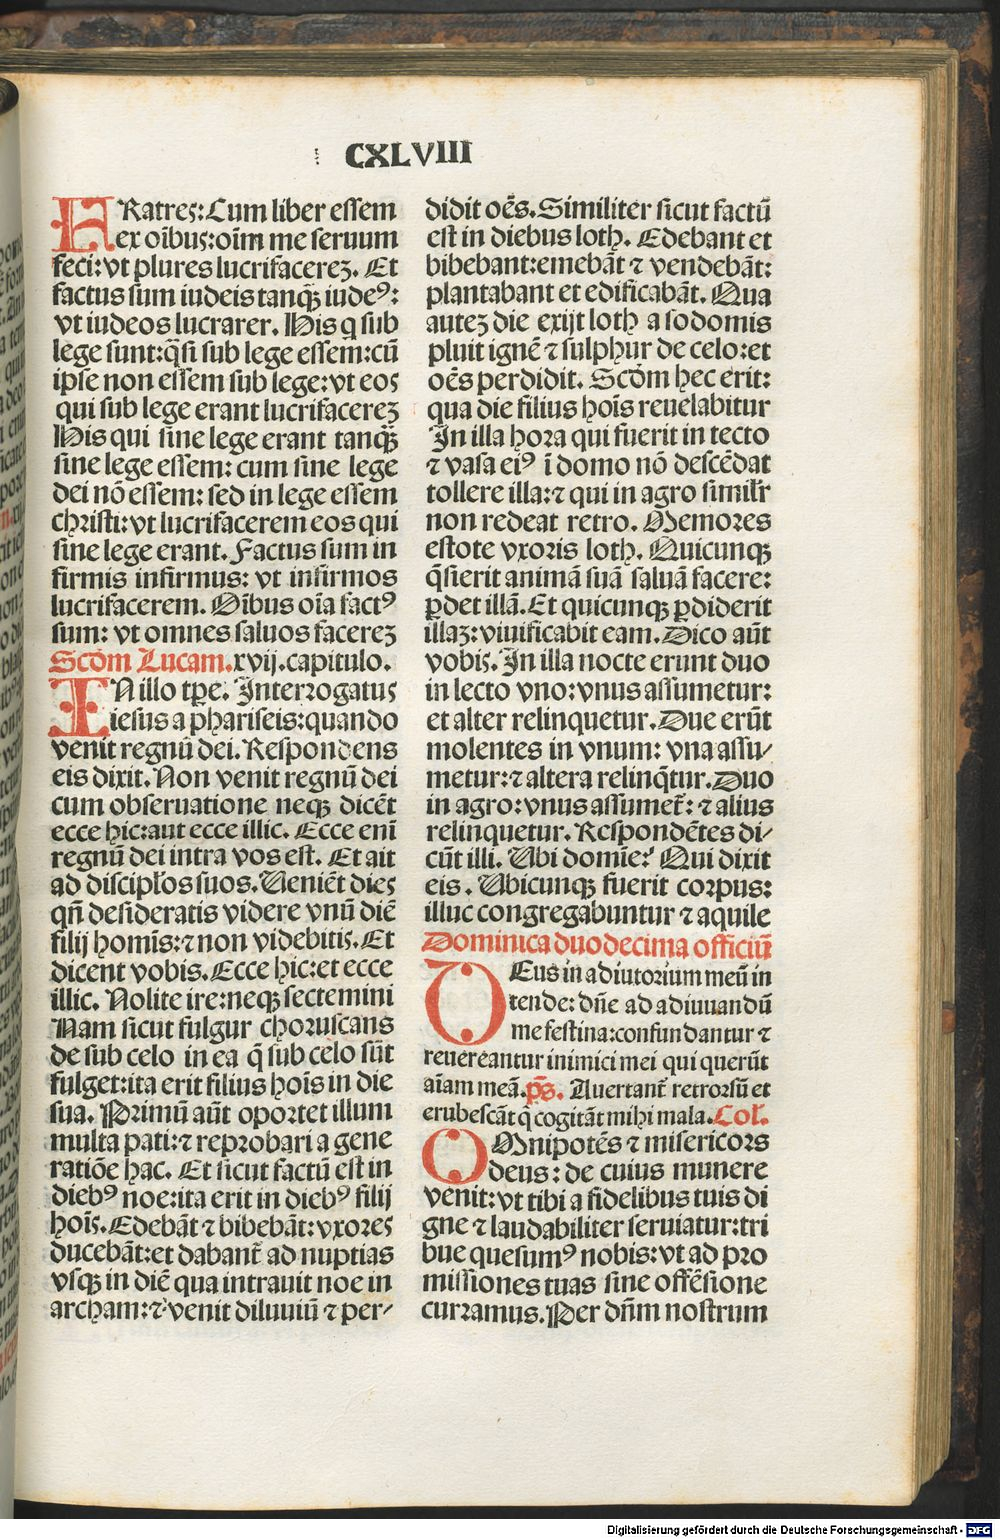 CXLVIII
FRatres: Cum liber essem
ex oībus: oīm me seruum
feci: vt plures lucrifacereꝫ. Et
factus sum iudeis tanqꝫ̄ iudeꝰ:
vt iudeos lucrarer. His q sub
lege sunt: q̄si sub lege essem: cū
ipse non essem sub lege: vt eos
qui sub lege erant lucrifacereꝫ
His qui sine lege erant tanqꝫ̄
sine lege essem: cum sine lege
dei nō essem: sed in lege essem
christi: vt lucrifacerem eos qui
sine lege erant. Factus sum in
firmis infirmus: vt infirmos
lucrifacerem. Oībus oīa factꝰ
sum: vt omnes saluos facereꝫ
Scd̄m Lucam. xvij. capitulo.
IN illo tꝑe. Interrogatus
iesus a phariseis: quando
venit regnū dei. Respondens
eis dixit. Non venit regnū dei
cum obseruatione neqꝫ dicēt
ecce hic: aut ecce illic. Ecce enī
regnū dei intra vos est. Et ait
ad discipl̄os suos. Ueniēt dies
qn̄ desideratis videre vnū diē
filij homīs: ⁊ non videbitis. Et
dicent vobis. Ecce hic: et ecce
illic. Nolite ire: neqꝫ sectemini
Nam sicut fulgur choruscans
de sub celo in ea q̄ sub celo sūt
fulget: ita erit filius hoīs in die
sua. Primū aūt oportet illum
multa pati: ⁊ reprobari a gene
ratiōe hac. Et sicut factū est in
diebꝰ noe: ita erit in diebꝰ filij
hoīs. Edebāt ⁊ bibebāt: vxores
ducebāt: et dabant̄ ad nuptias
vsqꝫ in diē qua intrauit noe in
archam: ⁊ venit diluuiū ⁊ per/
didit oēs. Similiter sicut factū
est in diebus loth. Edebant et
bibebant: emebāt ⁊ vendebāt:
plantabant et edificabāt. Qua
auteꝫ die exijt loth a sodomis
pluit ignē ⁊ sulphur de celo: et
oēs perdidit. Scd̄m hec erit:
qua die filius hoīs reuelabitur
In illa hora qui fuerit in tecto
⁊ vasa eiꝰ ī domo nō descēdat
tollere illa: ⁊ qui in agro simil̄r
non redeat retro. Memores
estote vxoris loth. Quicunqꝫ
q̄sierit animā suā saluā facere:
ꝑdet illā. Et quicunqꝫ ꝑdiderit
illaꝫ: viuificabit eam. Dico aūt
vobis. In illa nocte erunt duo
in lecto vno: vnus assumetur:
et alter relinquetur. Due erūt
molentes in vnum: vna assu/
metur: ⁊ altera relinq̄tur. Duo
in agro: vnus assumet̄: ⁊ alius
relinquetur. Respondētes di/
cūt illi. Ubi domie? Qui dixit
eis. Ubicunqꝫ fuerit corpus:
illuc congregabuntur ⁊ aquile
Dominica duodecima officiū
DEus in adiutorium meū in
tende: dn̄e ad adiuuandū
me festina: confundantur ⁊
reuereantur inimici mei qui querūt
aīam meā. p̄s. Auertant̄ retrorsū et
erubescāt q̄ cogitāt mihi mala. Col̄.
OMnipotēs ⁊ misericors
deus: de cuius munere
venit: vt tibi a fidelibus tuis di
gne ⁊ laudabiliter seruiatur: tri
bue quesumꝰ nobis: vt ad pro
missiones tuas sine offēsione
curramus. Per dn̄m nostrum
Digitalisierung gefördert durch die Deutsche Forschungsgemeinschaft - DFG